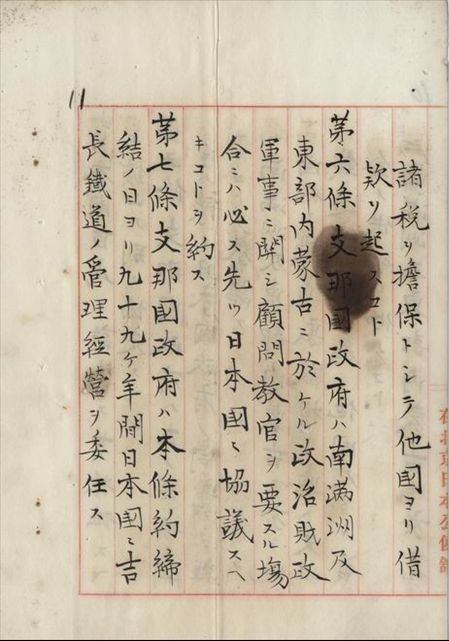 在北京日本公使館
諸税ヲ擔保トシテ他國ヨリ借
欵ヲ起スコト
第六條支那國政府ハ南滿洲及
東部内蒙古ニ於ケル政治財政
軍事ニ関シ顧問教官ヲ要スル塲
合ニハ必ス先ツ日本國ニ協議スヘ
キコトヲ約ス
第七條支那國政府ハ本條約締
結ノ日ヨリ九十九ケ年間日本國ニ吉
長鐵道ノ管理經營ヲ委任ス
11